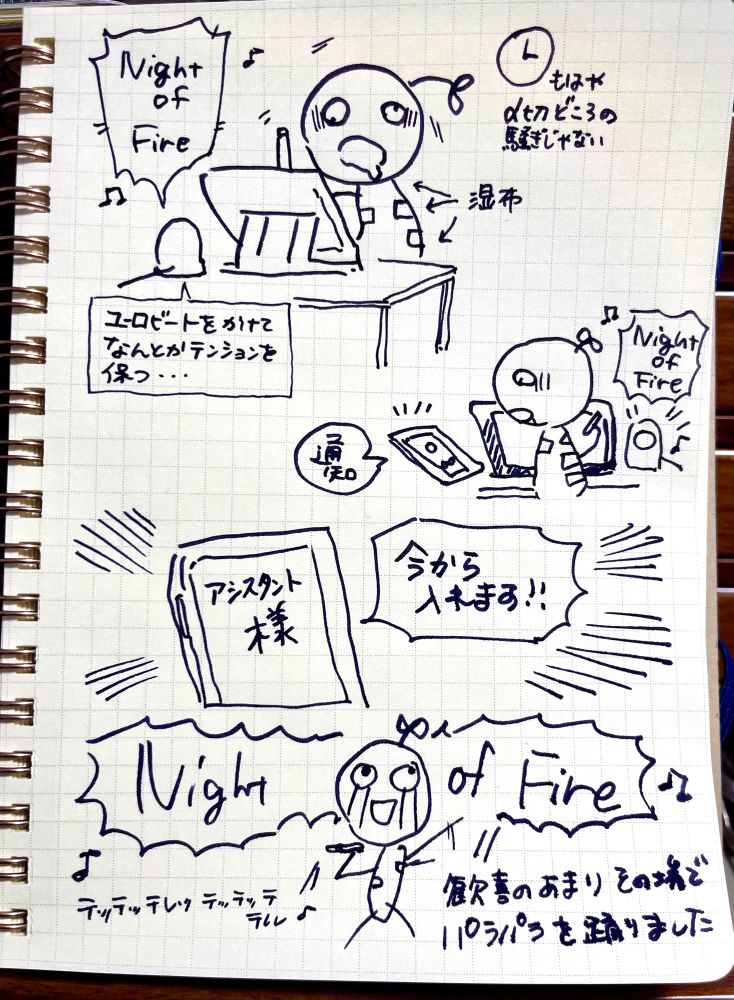 Night
of
Fire
もはや
〆切どころの
騒ぎじゃない
湿布
ユーロビートをかけて
なんとかテンションを
保つ・・・
Night
of
Fire
通知
アシスタント
様
今から
入れます!!
Night of Fire
テッテッテレッ テッテッテ
テレレ
歓喜のあまり その場で
パラパラを踊りました